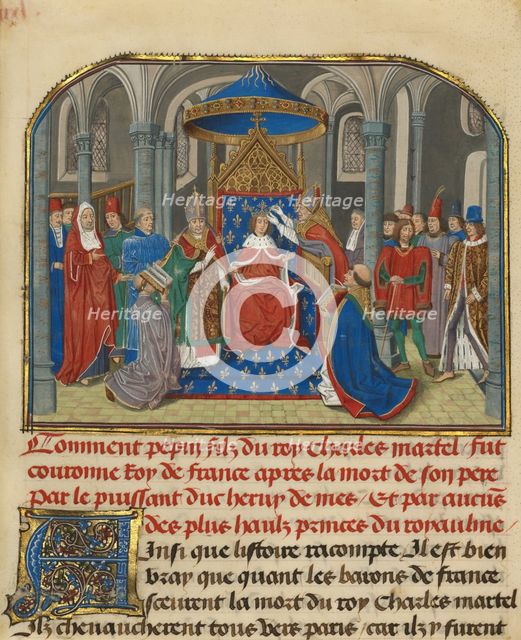 Comment pepin filz du roy Charles martel / fut
couronne Roy de france apres la mort de son pere
Par le puissant duc heruy de mes / Et par aucuns
des plus haulz princes du royaulme
Ainsi que listoire racompte / Il est bien
vray que quant les barons de france
sceurent la mort du roy Charles martel
Ilz cheuaucherent tous vers paris / car il y furent
Heritage
Heritage
Heritage
Heritage
Heritage
Heritage
Heritage
Heritage
C